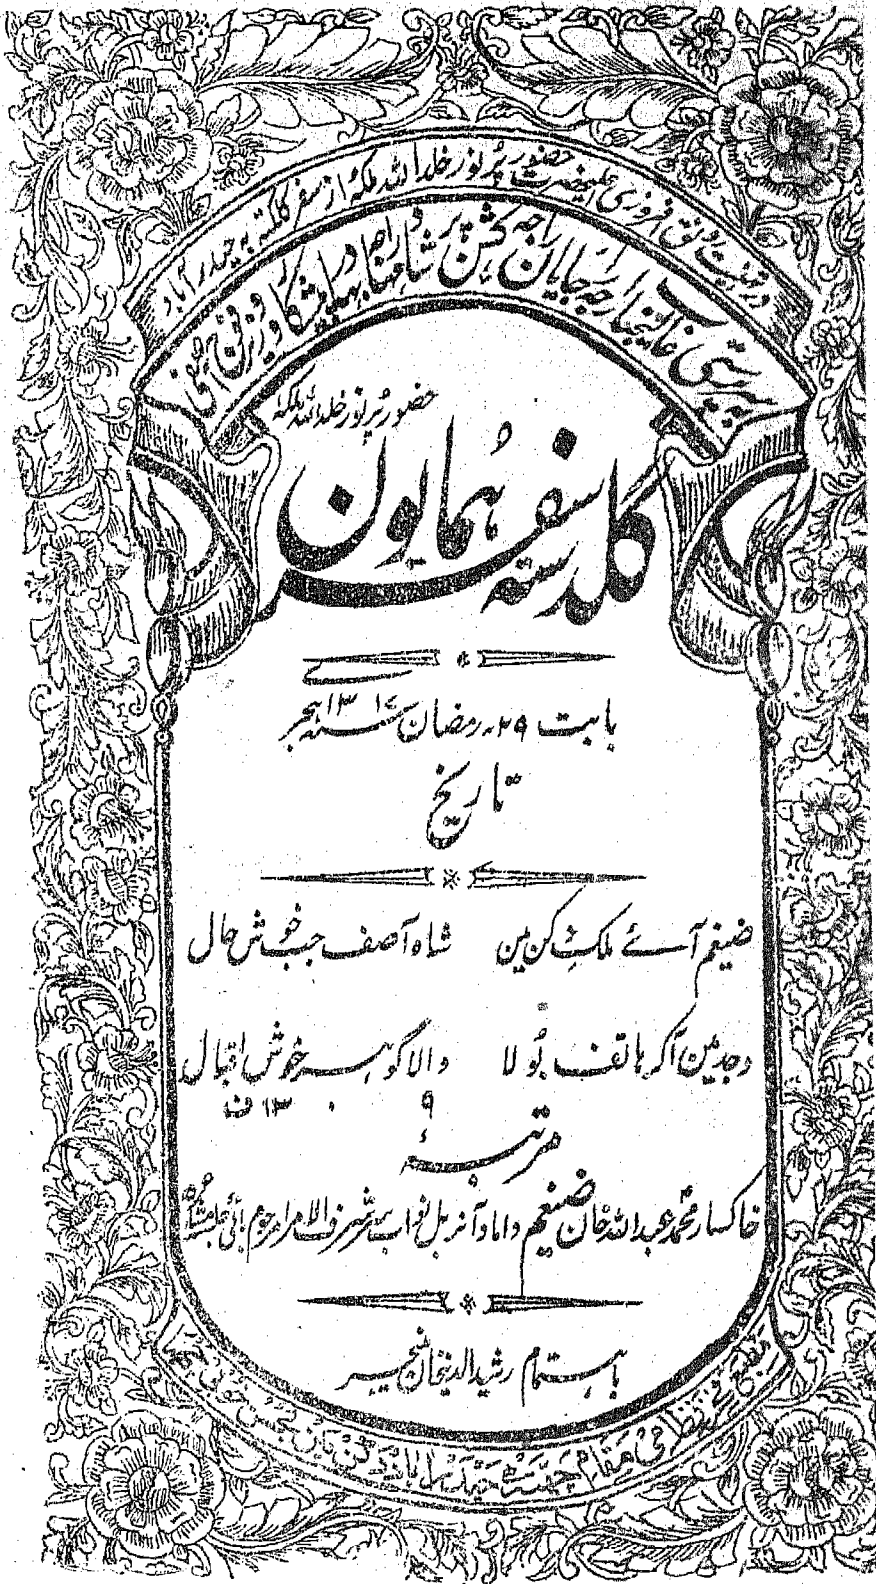 در تہنیت رونق افروزی اعلیٰحضرت حضور پُر نور خلد اللہ ملکہٗ از سفر کلکتہ بہ حیدرآباد
بہ سرپرستی عالیجناب راجہ راجایان راجہ کشن پرشاد مہاراجہ بہادر پیشکار و وزیر فوج آصفی
حضور پُر نور خلد اللہ ملکہٗ
گلدستہ سفر ہمایون
بابت ۲۹۔ رمضان سنہ ۱۳۱۷ ہجر کے
تاریخ
ضیغم آئے ملک دکن مین شاہ آصف جب خوش حال
وجد مین آکر ہاتف بُولا والا گوہر خوش اقبال
۱۳۰۹ ف
مرتبۂ
خاکسار محمد عبد اللہ خان ضیغم داماد آنربل نواب سر شرف الامرا مرحوم بانی جلسہ مشاعرہ
باہتمام رشید الدینخان منیجر
مطبع نظامی مقام چھتہ حیدرآباد دکن مین